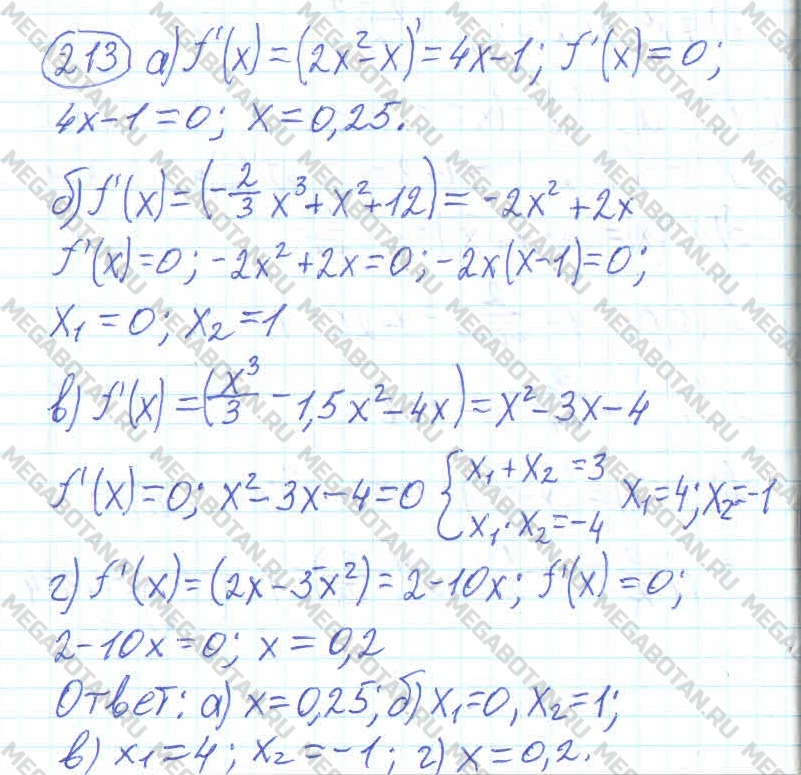 213 а) f'(x) = (2x² - x)' = 4x - 1; f'(x) = 0;
4x - 1 = 0; x = 0,25.
б) f'(x) = (-2/3 x³ + x² + 12) = -2x² + 2x
f'(x) = 0; -2x² + 2x = 0; -2x(x - 1) = 0;
x₁ = 0; x₂ = 1
в) f'(x) = (x³/3 - 1,5x² - 4x) = x² - 3x - 4
f'(x) = 0; x² - 3x - 4 = 0 { x₁ + x₂ = 3
x₁ · x₂ = -4
x₁ = 4; x₂ = -1
г) f'(x) = (2x - 5x²) = 2 - 10x; f'(x) = 0;
2 - 10x = 0; x = 0,2
Ответ: а) x = 0,25; б) x₁ = 0, x₂ = 1;
в) x₁ = 4; x₂ = -1; г) x = 0,2.
MEGABOTAN.RU